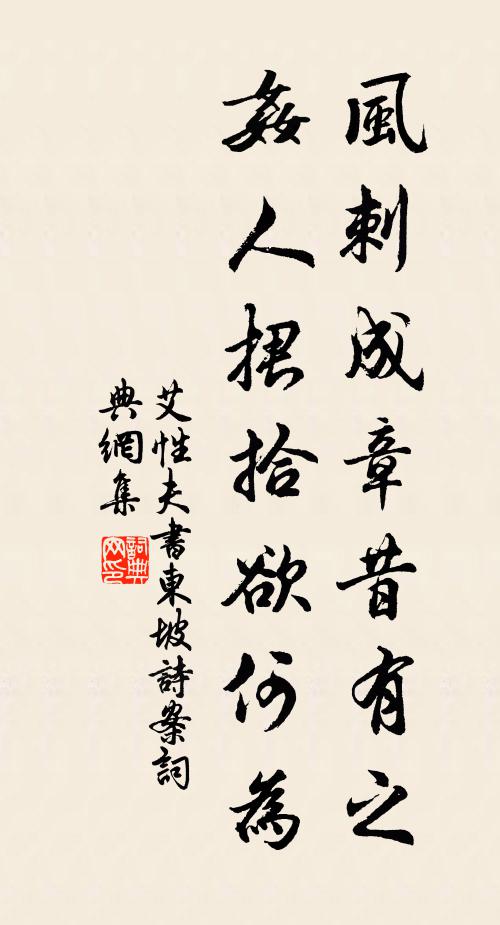 風刺成章昔有之
姦人捃拾欲何為
艾性夫書東坡詩案詞
典網集
詞典網印